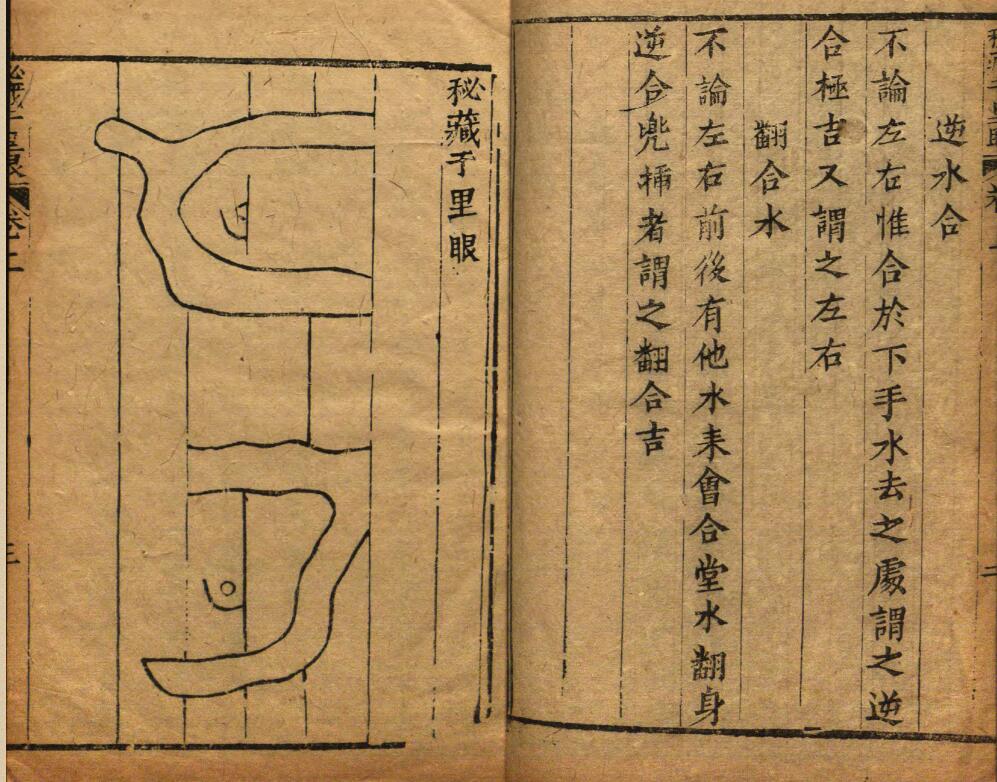 逆水合
不論左右惟合於下手水去之處謂之逆
合極吉又謂之左右
翻合水
不論左右前後有他水来會合堂水翻身
逆合兠揷者謂之翻合吉
二
秘藏千里眼
卷二
三